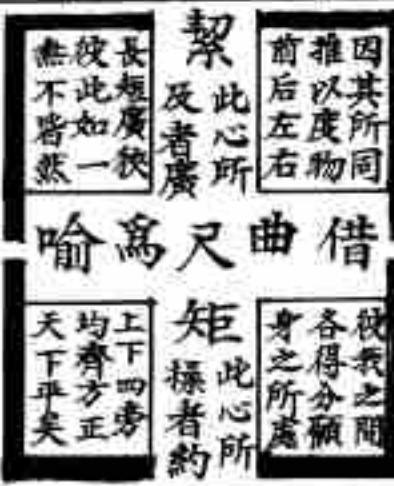 因其所同
推以度物
前后左右
絜
此心所
及者廣
長短廣狹
彼此如一
無不皆然
借曲尺爲喻
彼我之間
各得分願
身之所處
矩
此心所
操者約
上下四旁
均齊方正
天下平矣